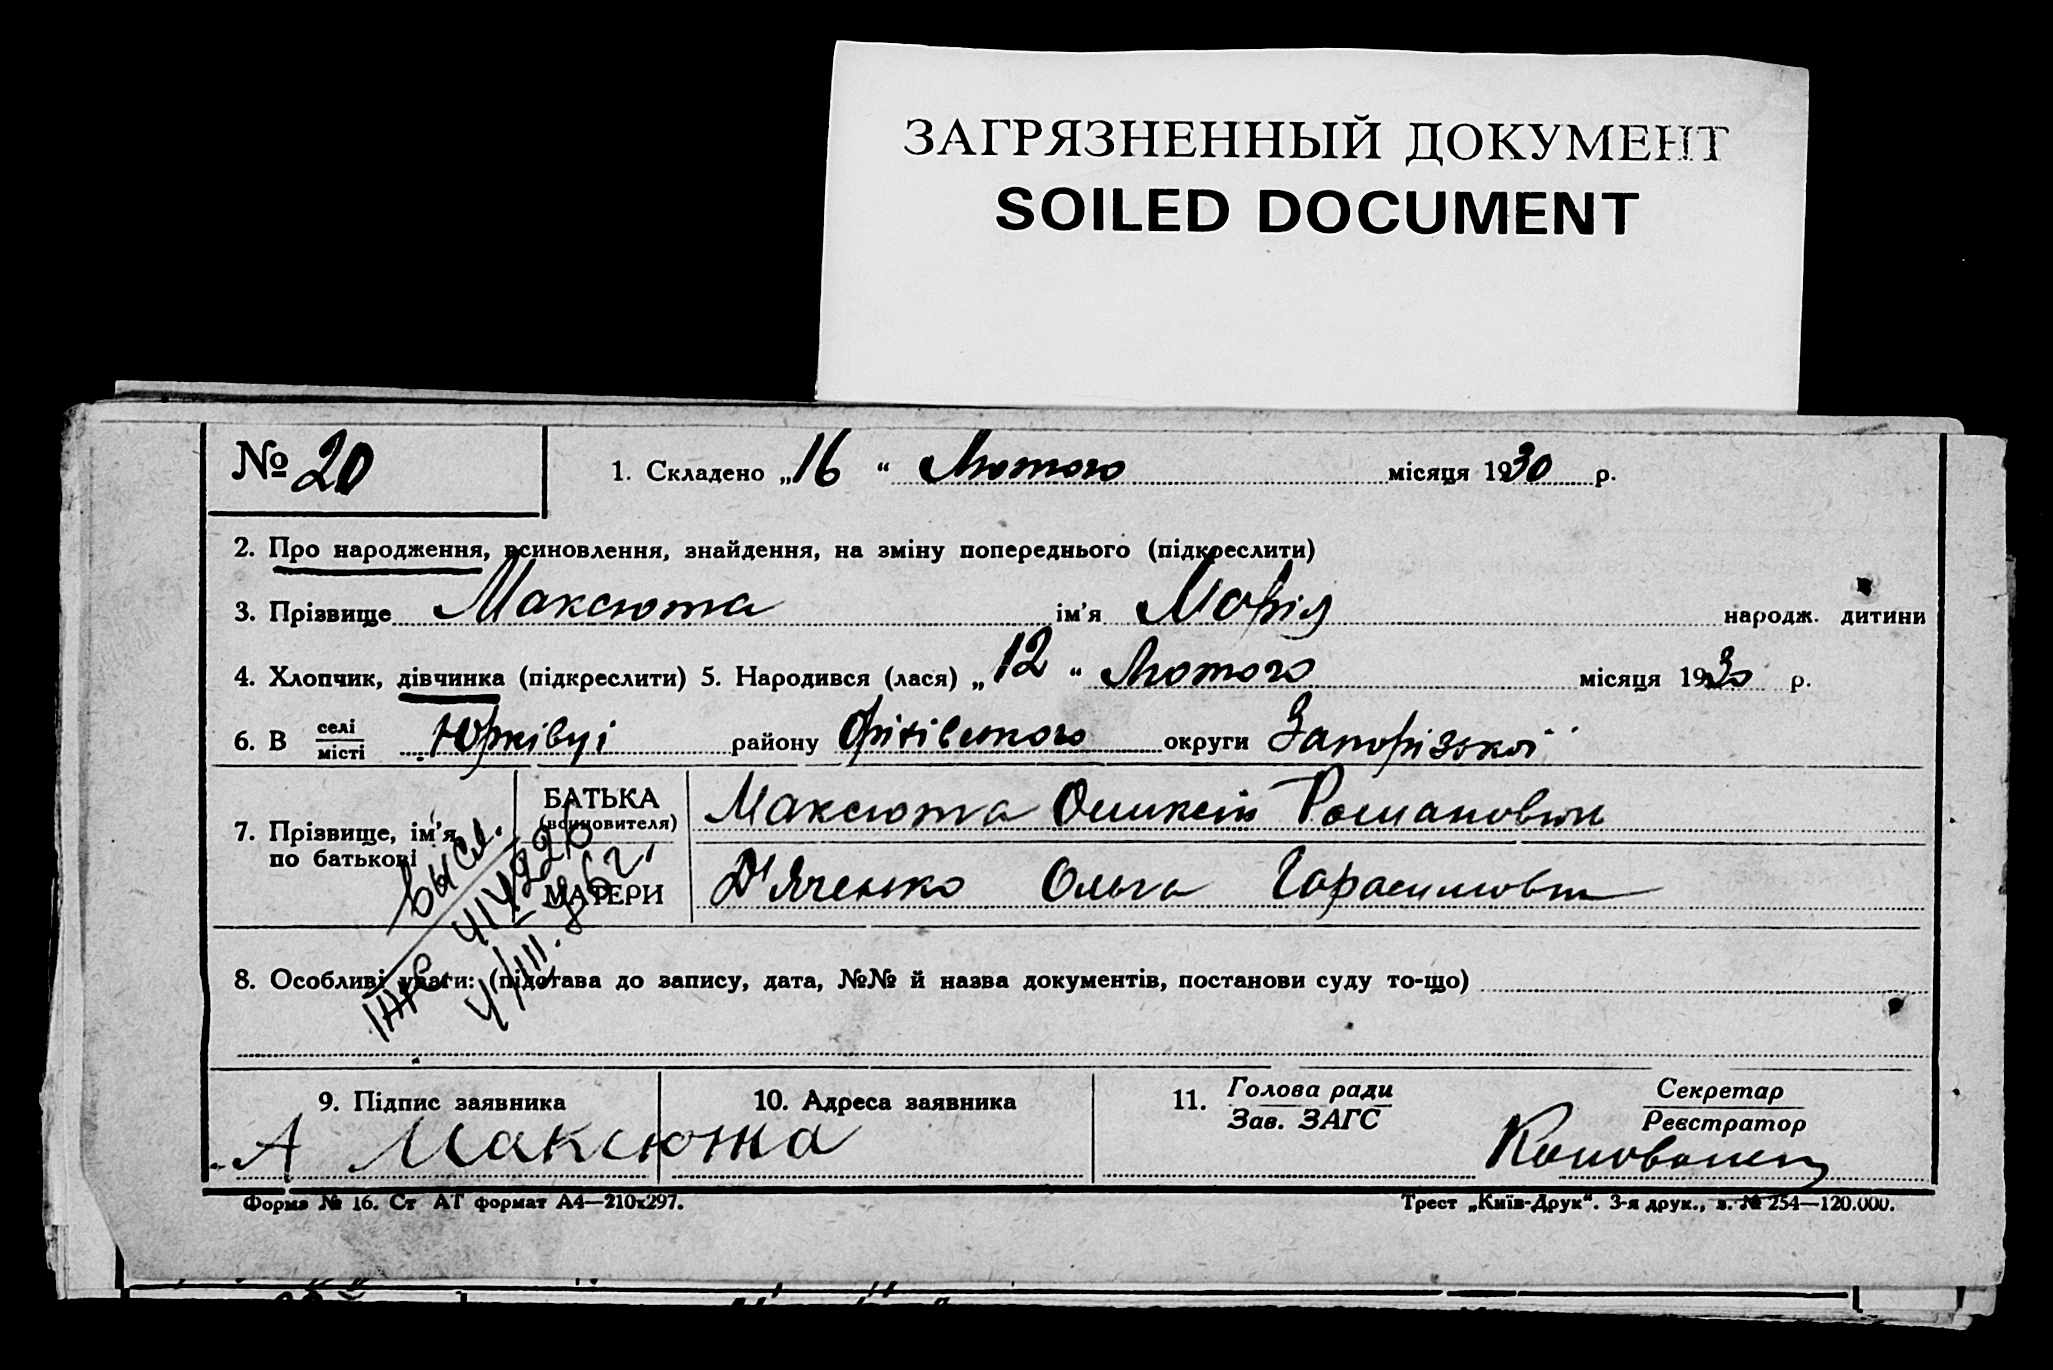 ЗАГРЯЗНЕННЫЙ ДОКУМЕНТ
SOILED DOCUMENT
№ 20
1. Складено „16“ Лютого місяця 1930 р.
2. Про народження, всиновлення, знайдення, на зміну попереднього (підкреслити)
3. Прізвище Максюта ім'я Марія народж. дитини
4. Хлопчик, дівчинка (підкреслити) 5. Народився (лася) „12“ Лютого місяця 1930 р.
6. В селі
місті
Юрківці району Оріхівського округи Запорізької
7. Прізвище, ім'я,
по батькові
БАТЬКА
(всиновителя)
Максюта Романович
МАТЕРИ
Д'яченко Ольга
8. Особливі уваги: (підстава до запису, дата, №№ й назва документів, постанови суду то-що)
9. Підпис заявника
А Максюта
10. Адреса заявника
11. Голова ради
Зав. ЗАГС
Секретар
Реєстратор
Форма № 16. Ст АТ формат А4—210х297.
Трест „Київ-Друк“. 3-я друк., з. № 254—120.000.